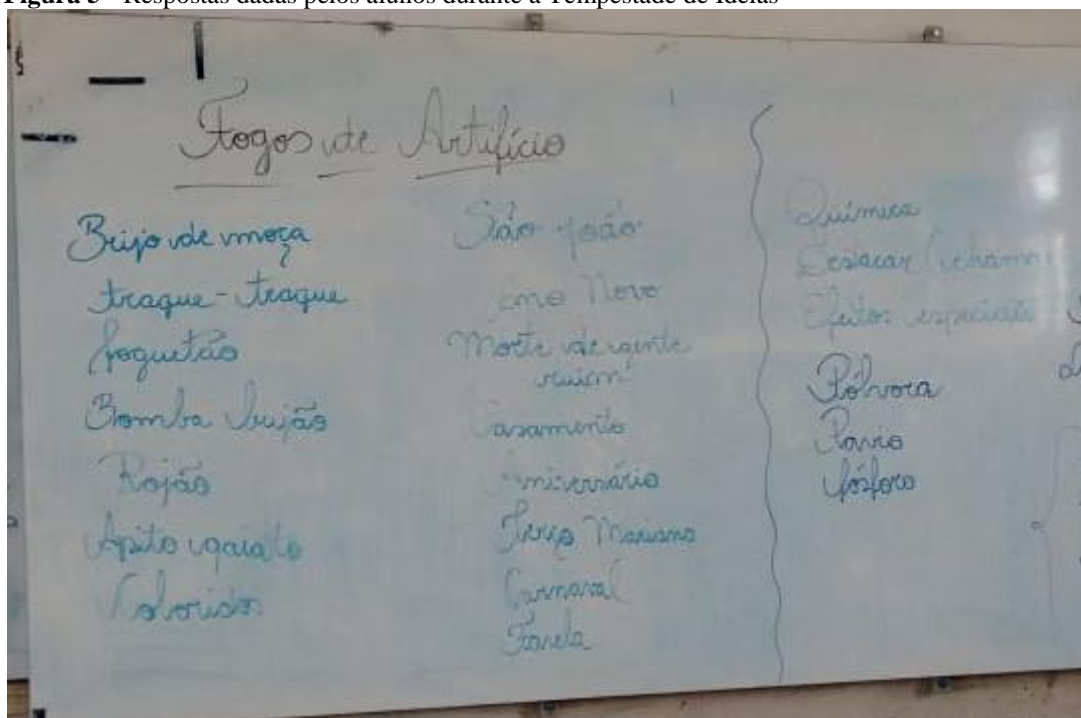 Figura 5 - Respostas dadas pelos alunos durante a Tempestade de Ideias
Fogos de Artifício
Beijo de moça
traque-traque
foguetão
Bomba bujão
Rojão
Apito gaiato
Coloridos
São joão
Ano Novo
Morte de gente
ruim
Casamento
Aniversário
Terço Mariano
Carnaval
Favela
Química
Efeitos especiais
Pólvora
Pavio
fósforo